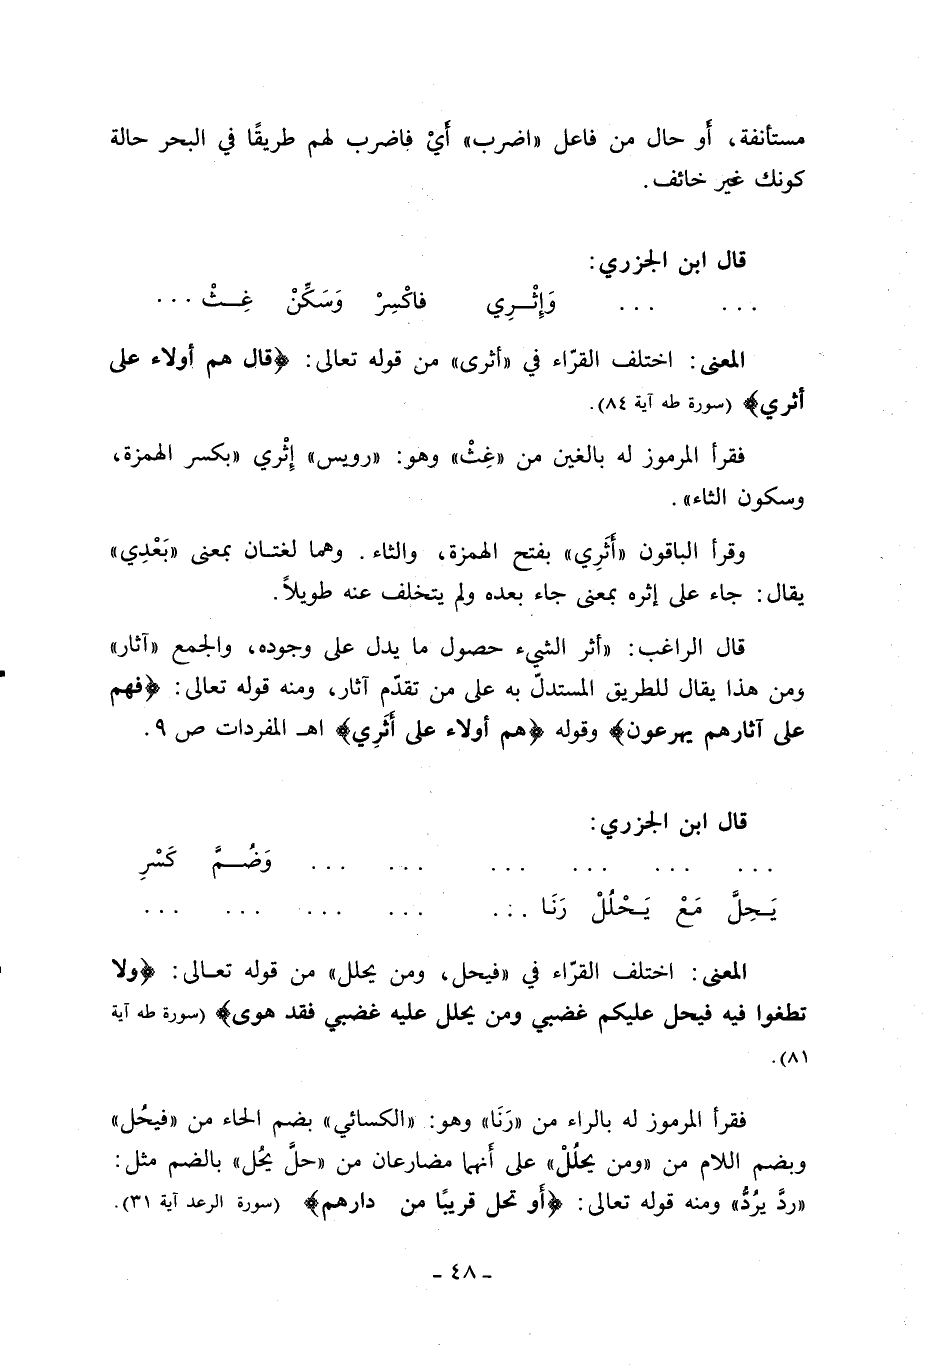 مستأنفة، أَو حال من فاعل «اضرب» أَيْ فاضرب لهم طريقًا في البحر حالة
كونك غير خائف.
قال ابن الجزري:
... ... وَإِثْـرِي فاكْسِرْ وَسَكِّنْ غِـثْ ...
المعنى: اختلف القرّاء في «أثرى» من قوله تعالى: ﴿قال هم أولاء على
أثري﴾ (سورة طه آية ٨٤).
فقرأ المرموز له بالغين من «غِثْ» وهو: «رويس» إِثْري «بكسر الهمزة،
وسكون الثاء».
وقرأ الباقون «أَثَرِي» بفتح الهمزة، والثاء. وهما لغتان بمعنى «بَعْدِي»
يقال: جاء على إثره بمعنى جاء بعده ولم يتخلف عنه طويلاً.
قال الراغب: «أثر الشيء حصول ما يدل على وجوده، والجمع «آثار»
ومن هذا يقال للطريق المستدلّ به على من تقدّم آثار، ومنه قوله تعالى: ﴿فهم
على آثارهم يهرعون﴾ وقوله ﴿هم أولاء على أَثَرِي﴾ اهـ المفردات ص ٩.
قال ابن الجزري:
... ... ... ... ... ... وَضُـمَّ كَسْرِ
يَـحِلَّ مَعْ يَـحْلُلْ رَنَـا ... ... ... ... ...
المعنى: اختلف القرّاء في «فيحل، ومن يحلل» من قوله تعـالى: ﴿ولا
تطغوا فيه فيحل عليكم غضبي ومن يحلل عليه غضبي فقد هوى﴾ (سورة طه آية
٨١).
فقرأ المرموز له بالراء من «رَنَا» وهو: «الكسائي» بضم الحاء من «فيحُل»
وبضم اللام من «ومن يحلُلْ» على أَنها مضارعان من «حلَّ يحُل» بالضم مثل:
«ردَّ يرُدُّ» ومنه قوله تعالى: ﴿أو تحل قريبًا من دارهم﴾ (سورة الرعد آية ٣١).
- ٤٨ -